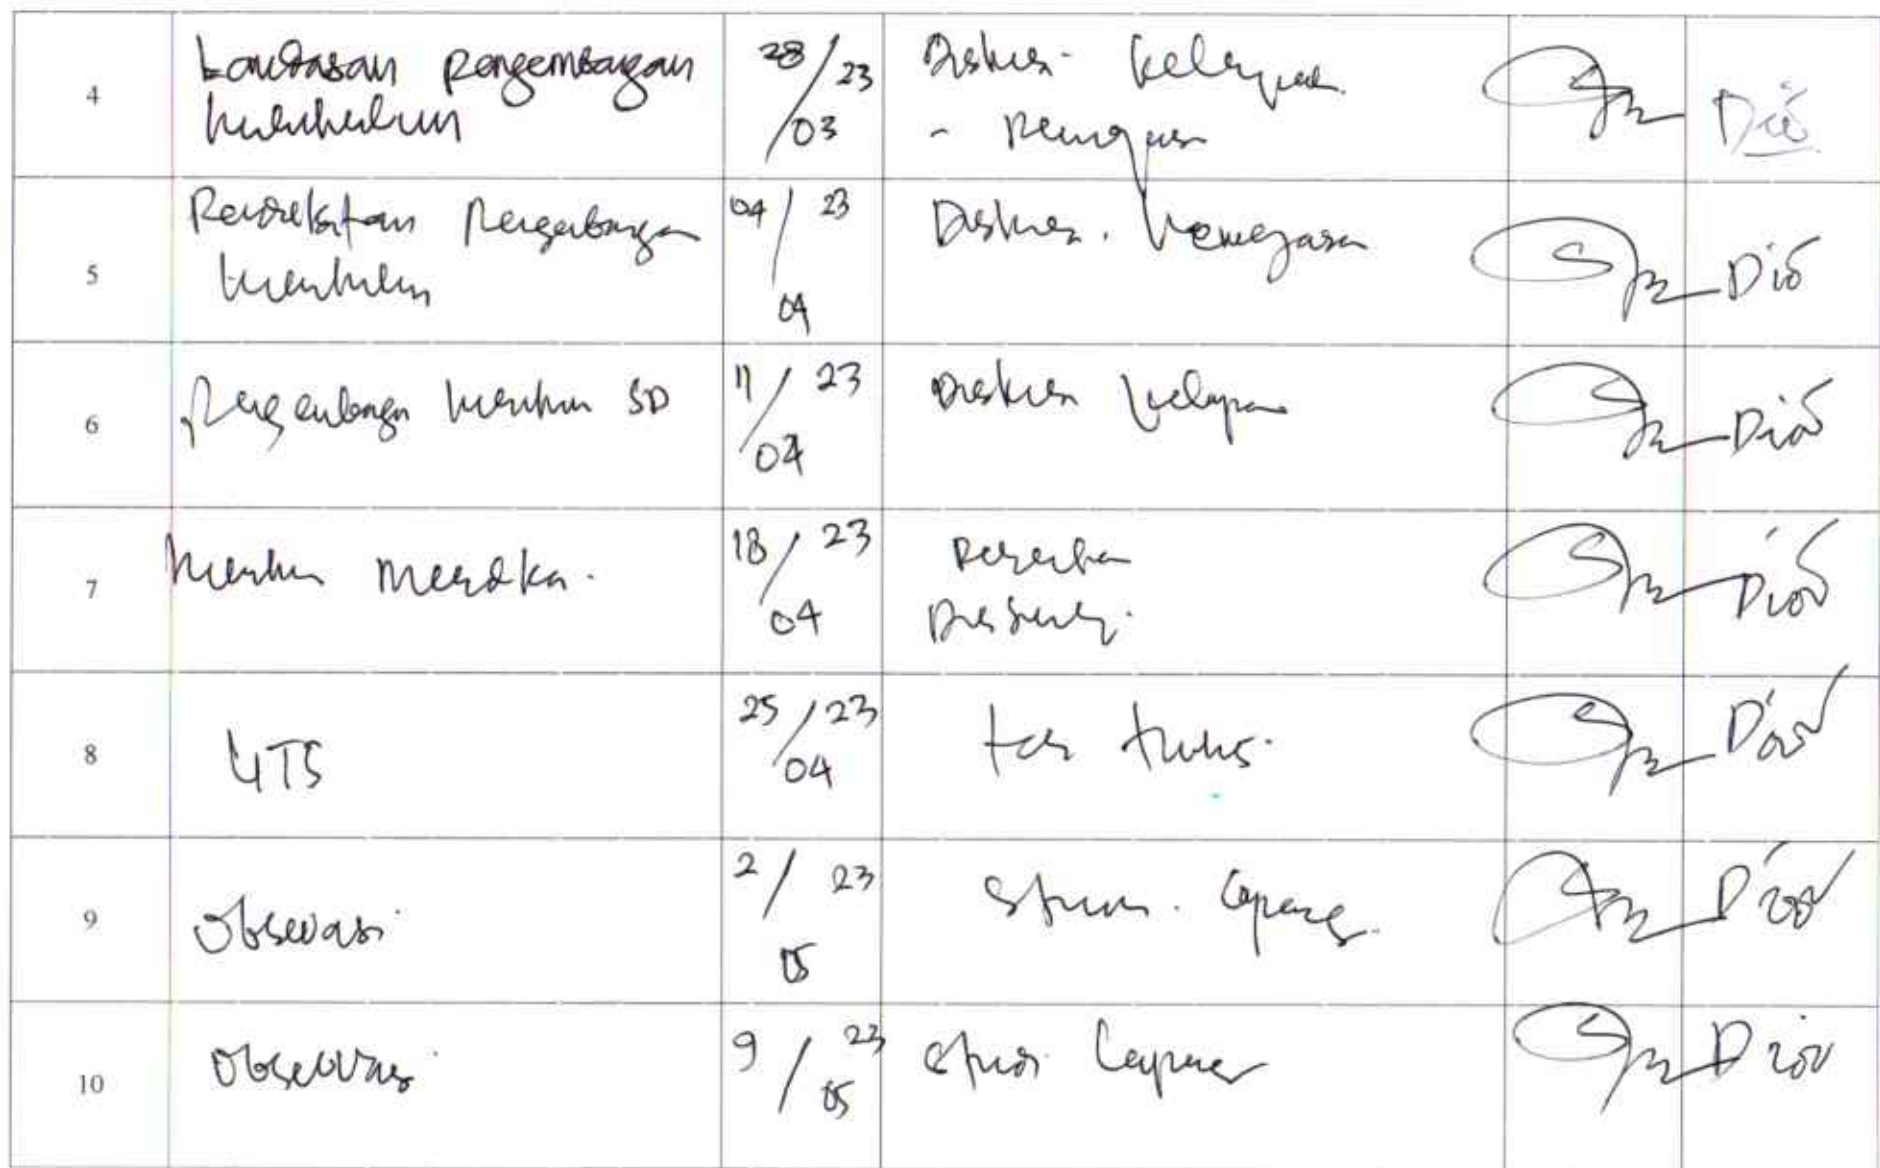 4
Landasan pengembangan
kurikulum
28/23
/03
Diskusi kelompok
- Penugasan
Dio
5
Pendekatan Pengembangan
kurikulum
04/23
04
Diskusi. Penugasan
Dio
6
Pengembangan kurikulum SD
11/23
04
Diskusi kelompok
Dio
7
Kurikulum Merdeka.
18/23
04
Dio
8
UTS
25/23
04
tes tulis.
Dio
9
Observasi
2/23
05
Lapang.
Dio
10
Observasi
9/23
05
Studi Lapang
Dio